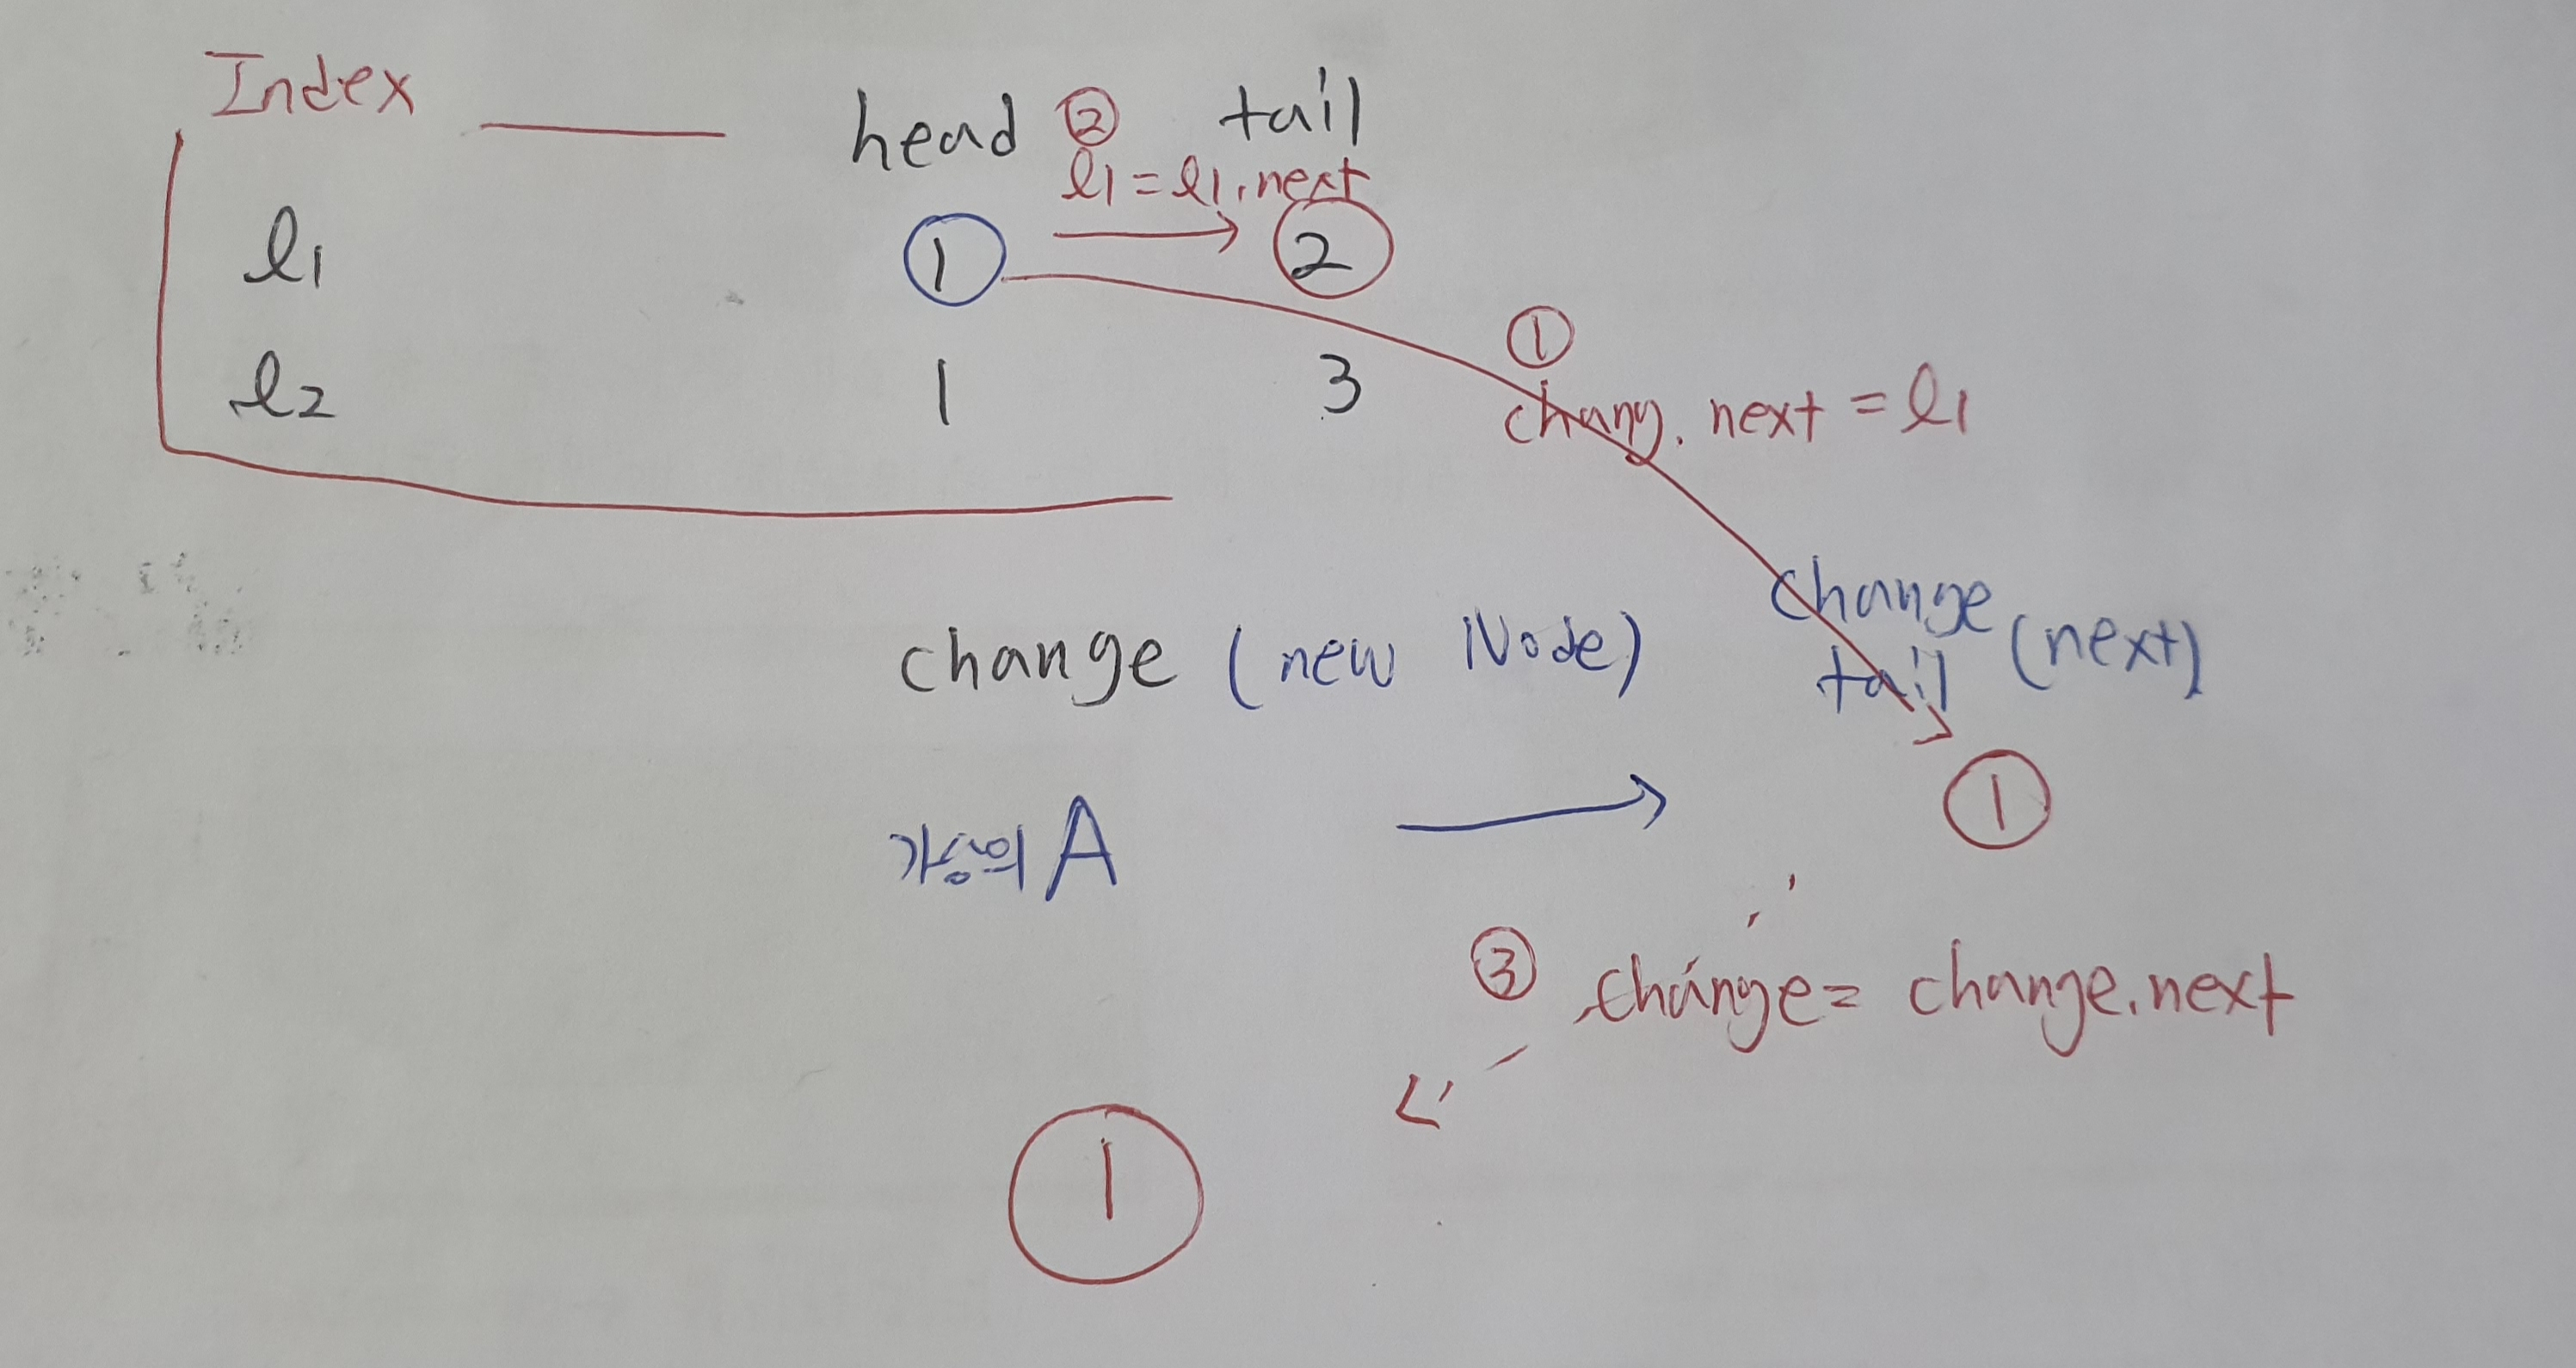 Index
head ② tail
l1 = l1.next
l1 ① ②
①
l2 1 3
chang. next = l1
change
change (new Node)
tail (next)
가상의 A
①
③ change = change.next
①